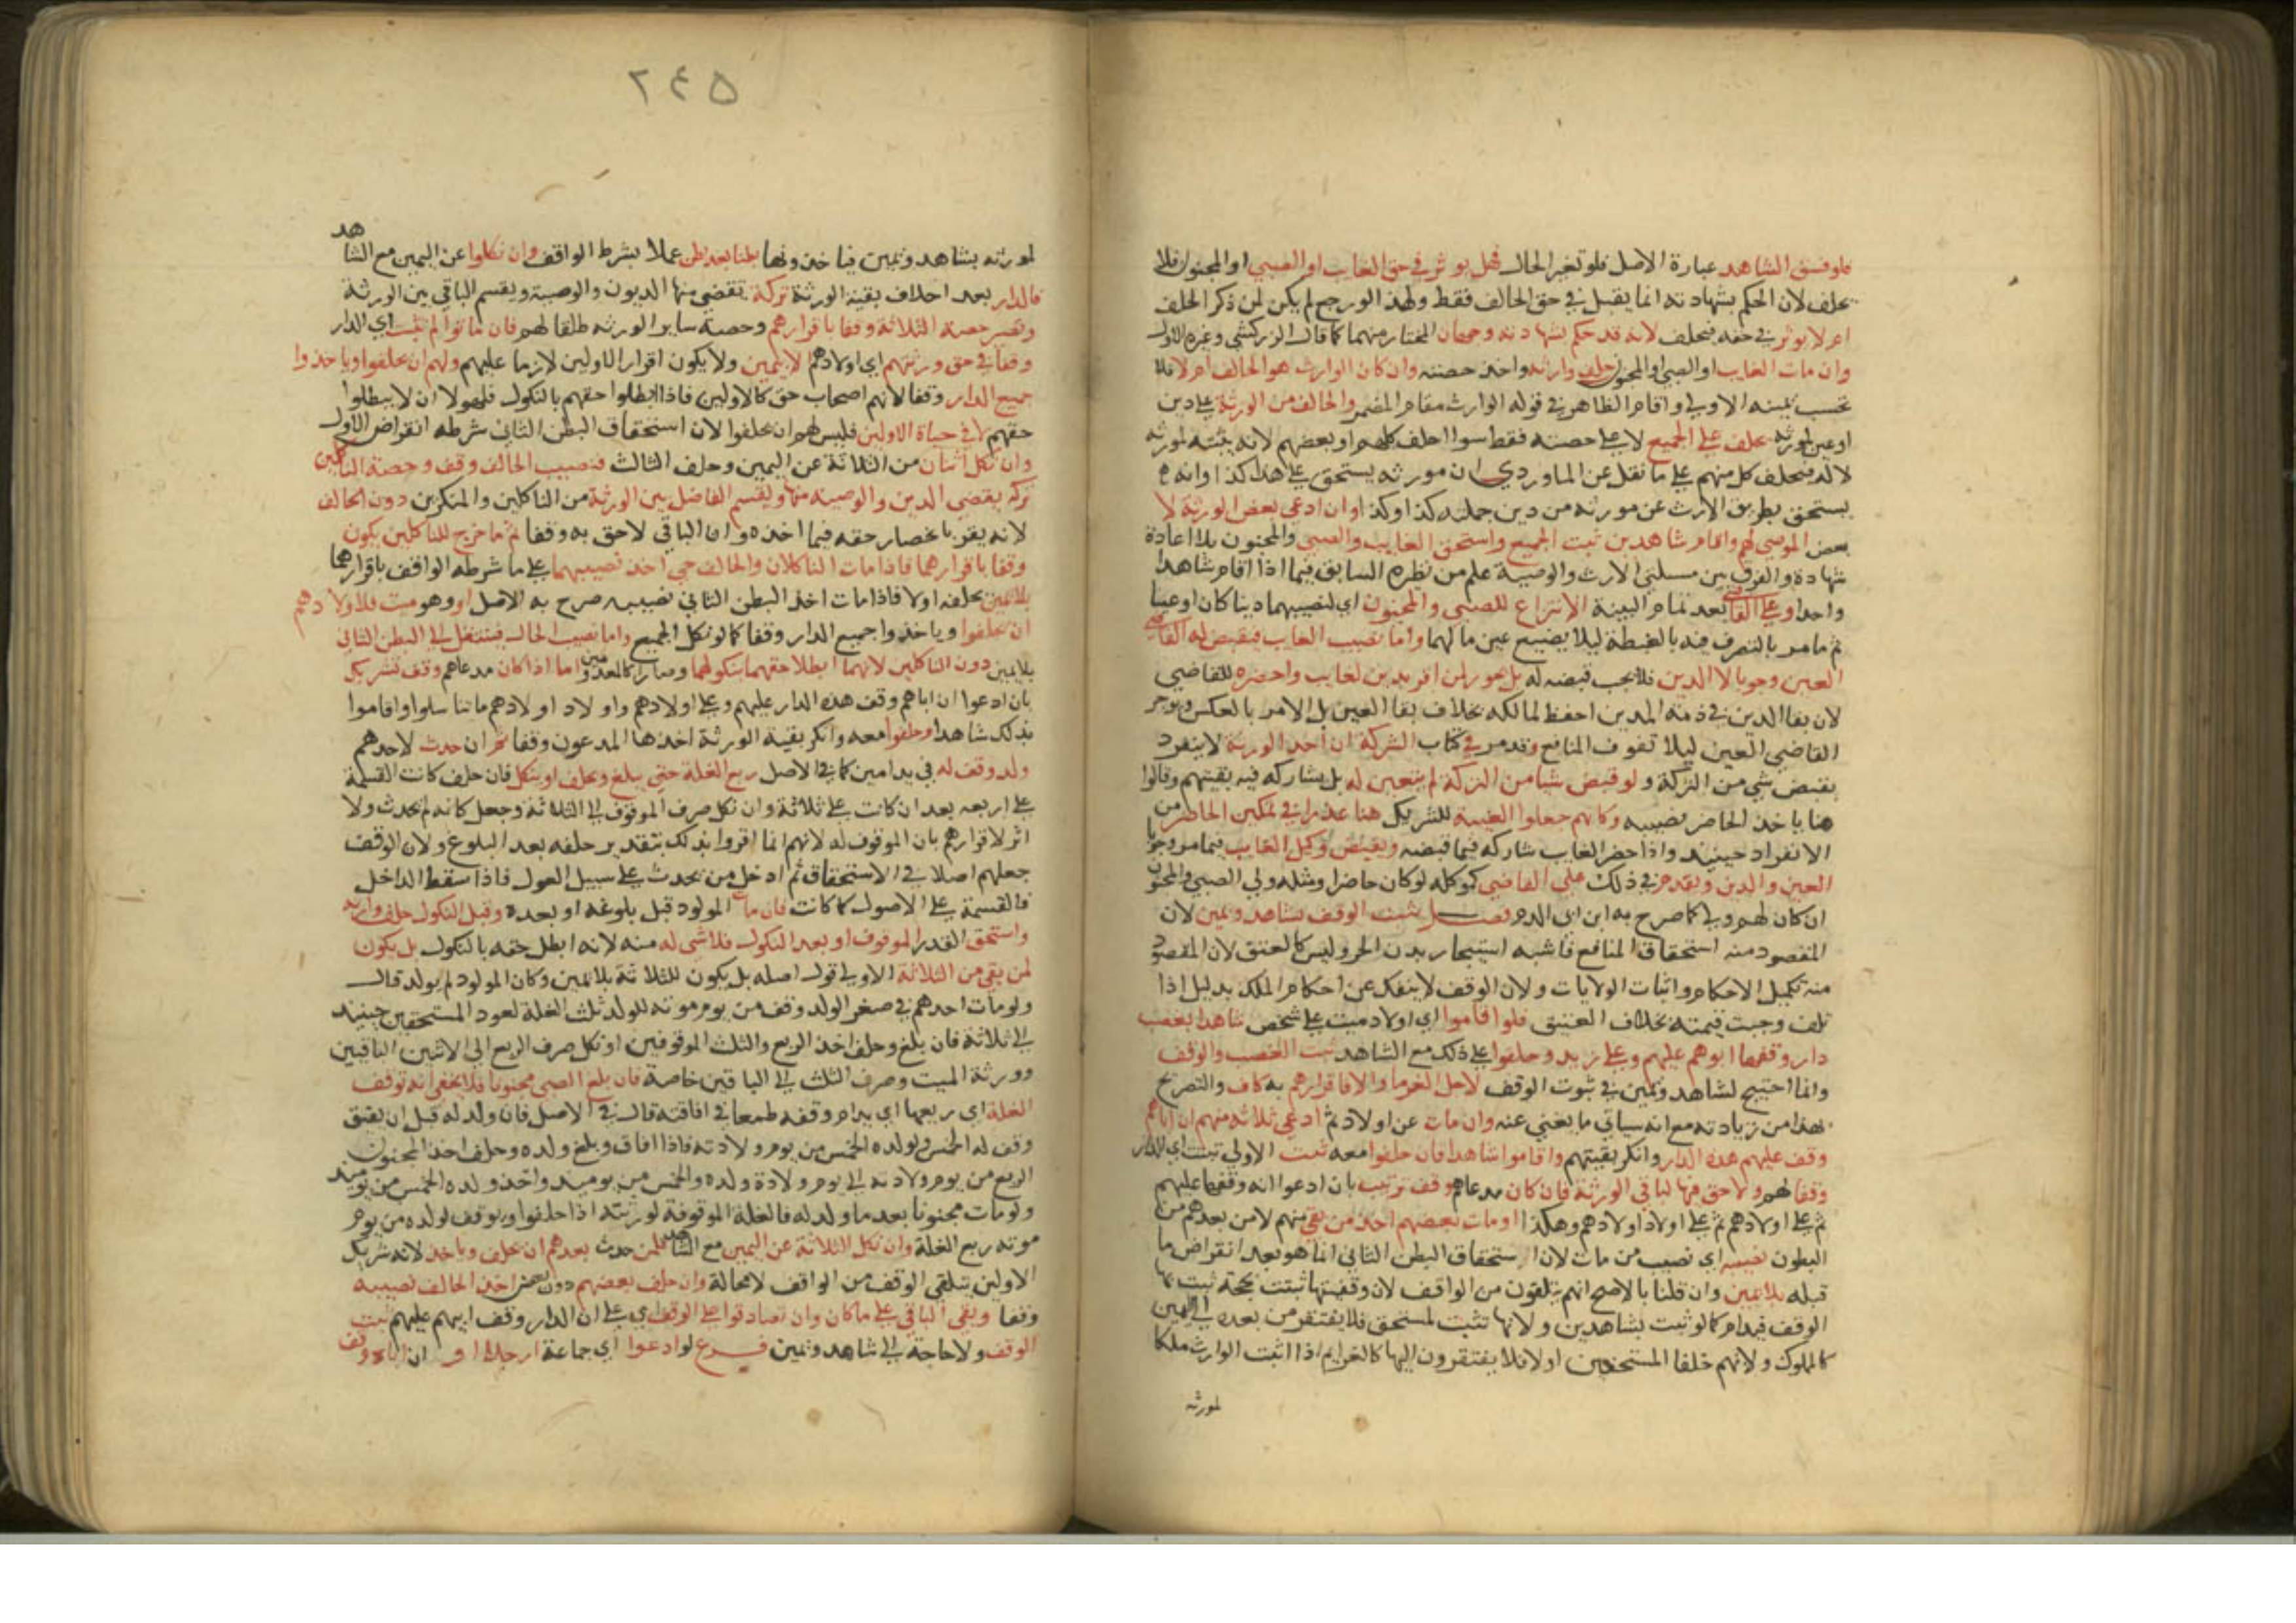 فلو فسق الشاهد عبارة الاصل فلو تغير الحال فهل يوثر في حق الغايب او الصبي او المجنون فلا
يحلف لان الحكم بشهادته انما يقبل في حق الحالف فقط ولهذا لو رجع لم يكن لمن ذكر الحلف
ام لا يوثر في حقه فيحلف لانه قد حكم بشهادته وجهان المختار منهما كما قال الزركشي وغيره الاول
وان مات الغايب او الصبي او المجنون حلف وارثه واخذ حصته وان كان الوارث هو الحالف ام لا فلا
تحسب يمينه الاولى واقام الظاهر في قوله الوارث مقام المضمر والحالف من الورثة على دين
او عين لمورثه يحلف على الجميع لا على حصته فقط سوا احلف كلهم او بعضهم لانه يثبته لمورثه
لا له فيحلف كل منهم على ما نقل عن الماوردي ان مورثه يستحق على هذا كذا او انه
يستحق بطريق الارث عن مورثه من دين جملته كذا وكذا وان ادعى بعض الورثة لا
بعض الموصي لهم واقام شاهدين ثبت الجميع واستحق الغايب والصبي والمجنون بلا اعادة
شهادة والفرق بين مسلتي الارث والوصية علم من نظره السابق فيما اذا اقام شاهدا
واحدا وعلى القاضي بعد تمام البينة الانتزاع للصبي والمجنون اي لنصيبهما دينا كان او عينا
ثم يامر بالتصرف فيه بالغبطة ليلا يضيع عين مالهما واما نصيب الغايب فيقبض له القاضي
العين وجوبا لا الدين فلا يجب قبضه له بل يجوز لمن اقر بدين لغايب واحضره للقاضي
لان بقا الدين في ذمة المدين احفظ لمالكه بخلاف بقا العين بل الامر بالعكس ويوجر
القاضي العين ليلا تفوت المنافع وقد مر في كتاب الشركة ان احد الورثة لا ينفرد
بقبض شي من التركة ولو قبض شيا من التركة لم يتعين له بل يشاركه فيه بقيتهم وقالوا
هنا ياخذ الحاضر نصيبه وكانهم جعلوا الغيبة للشريك هنا عذرا في تمكين الحاضر من
الانفراد حينيذ واذا حضر الغايب شاركه فيما قبضه ويقبض وكيل الغايب فيما مر وجوبا
العين والدين ويقدم في ذلك على القاضي كموكله لو كان حاضرا ومثله ولي الصبي والمجنون
ان كان لهم ولي كما صرح به ابن ابي الدم فصل يثبت الوقف بشاهد ويمين لان
المقصود منه استحقاق المنافع فاشبه استيجار بدن الحر وليس كالعتق لان المقصود
منه تكميل الاحكام واثبات الولايات ولان الوقف لا ينفك عن احكام الملك بدليل اذا
تلف وجبت قيمته بخلاف العتيق فلو اقاموا اي اولاد ميت على شخص شاهدا بغصب
دار وقفها ابوهم عليهم وعلى زيد وحلفوا على ذلك مع الشاهد ثبت الغصب والوقف
وانما احتيج لشاهد ويمين في ثبوت الوقف لاجل الغرما والا فاقرارهم به كاف والتصريح
بهذا من زيادته مع انه سياتي ما يغني عنه وان مات عن اولاد ثم ادعى ثلاثة منهم ان اباهم
وقف عليهم هذه الدار وانكر بقيتهم واقاموا شاهدا فان حلفوا معه ثبت الاولى ثبتت اي الدار
وقفا لهم ولا حق فيها لباقي الورثة فان كان مدعاهم وقف ترتيب بان ادعوا انه وقفها عليهم
ثم على اولادهم ثم على اولاد اولادهم وهكذا او مات بعضهم اخذ من بقي منهم لا من بعدهم من
البطون نصيبه اي نصيب من مات لان استحقاق البطن الثاني انما هو بعد انقراض ما
قبله بلا يمين وان قلنا بالاصح انهم يتلقون من الواقف لان وقفيتها ثبتت بحجة ثبت بها
الوقف فيدام كما لو ثبت بشاهدين ولانها تثبت لمستحق فلا يفتقر من بعده الى اليمين
كالملوك ولانهم خلفا المستحقين اولا فلا يفتقرون اليها كالغرايم اذا اثبت الوارث ملكا
لمورثه
٢٤٥
لمورثه بشاهد ويمين فياخذونها بطنا بعد بطن عملا بشرط الواقف وان نكلوا عن اليمين مع الشاهد
فالدار بعد احلاف بقية الورثة تركة تقضى منها الديون والوصية ويقسم الباقي بين الورثة
وتصير حصة الثلاثة وقفا باقرارهم وحصة ساير الورثة طلقا لهم فان ماتوا لم تثبت اي الدار
وقفا في حق ورثتهم اي اولادهم الا بيمين ولا يكون اقرار الاولين لازما عليهم ولهم ان يحلفوا وياخذوا
جميع الدار وقفا لانهم اصحاب حق كالاولين فاذا ابطلوا حقهم بالنكول فلهولا ان لا يبطلوا
حقهم لا في حياة الاولين فليس لهم ان يحلفوا لان استحقاق البطن الثاني شرطه انقراض الاول
وان نكل اثنان من الثلاثة عن اليمين وحلف الثالث فنصيب الحالف وقف وحصة الناكلين
تركة يقضي الدين والوصية منها ويقسم الفاضل بين الورثة من الناكلين والمنكرين دون الحالف
لانه يقر بانحصار حقه فيما اخذه وان الباقي لا حق به وقفا ثم ما خرج للناكلين يكون
وقفا باقرارهما فاذا مات الناكلان والحالف حي اخذ نصيبهما على ما شرطه الواقف باقرارهما
بلا يمين بحلفه اولا فاذا مات اخذ البطن الثاني نصيبه صرح به الاصل او وهو ميت فلاولادهم
ان يحلفوا وياخذوا جميع الدار وقفا كما لو نكل الجميع واما نصيب الحالف فينتقل الى البطن الثاني
بلا يمين دون الناكلين لانهما ابطلا حقهما بنكولهما وصارا كالمعدومين اما اذا كان مدعاهم وقف تشريك
بان ادعوا ان اباهم وقف هذه الدار عليهم وعلى اولادهم واولاد اولادهم ما تناسلوا واقاموا
بذلك شاهدا وحلفوا معه وانكر بقية الورثة اخذها المدعون وقفا ثم ان حدث لاحدهم
ولد وقف له في يد امين كما في الاصل ربع الغلة حتى يبلغ ويحلف او ينكل فان حلف كانت القسمة
على اربعة بعد ان كانت على ثلاثة وان نكل صرف الموقوف الى الثلاثة وجعل كانه لم يحدث ولا
اثر لاقرارهم بان الموقوف له لانهم انما اقروا بذلك بتقدير حلفه بعد البلوغ ولان الوقف
جعلهم اصلا في الاستحقاق ثم ادخل من يحدث على سبيل العول فاذا سقط الداخل
فالقسمة على الاصول كما كانت فان مات المولود قبل بلوغه او بعده وقبل النكول حلف وارثه
واستحق القدر الموقوف او بعد النكول فلا شي له منه لانه ابطل حقه بالنكول بل يكون
لمن بقي من الثلاثة الاولى قول اصله بل يكون للثلاثة بلا يمين وكان المولود لم يولد قال
ولو مات احدهم في صغر الولد وقف من يوم موته للولد ثلث الغلة لعود المستحقين حينيذ
الى ثلاثة فان بلغ وحلف اخذ الربع والثلث الموقوفين او نكل صرف الربع الى الاثنين الباقيين
وورثة الميت وصرف الثلث الى الباقين خاصة فان بلغ الصبي مجنونا فلا يخفى انه توقف
الغلة اي ريعها اي يدام وقفه طمعا في افاقته قال في الاصل فان ولد له قبل ان يفيق
وقف له الخمس ولولده الخمس من يوم ولادته فاذا افاق وبلغ ولده وحلف اخذ المجنون
الربع من يوم ولادته الى يوم ولادة ولده والخمس من يوميذ واخذ ولده الخمس من يوميذ
ولو مات مجنونا بعد ما ولد له فالغلة الموقوفة لورثته اذا حلفوا ويوقف لولده من يوم
موته ربع الغلة وان نكل الثلاثة عن اليمين مع الشاهد فلمن حدث بعدهم ان يحلف وياخذ لانه شريك
الاولين يتلقى الوقف من الواقف لا محالة وان حلف بعضهم دون بعض اخذ الحالف نصيبه
وقفا وبقي الباقي على ما كان وان تصادقوا على الوقف اي على ان الدار وقف ابيهم عليهم ثبت
الوقف ولا حاجة الى شاهد ويمين فرع لو ادعوا اي جماعة ان رجلا او ان اباه وقف